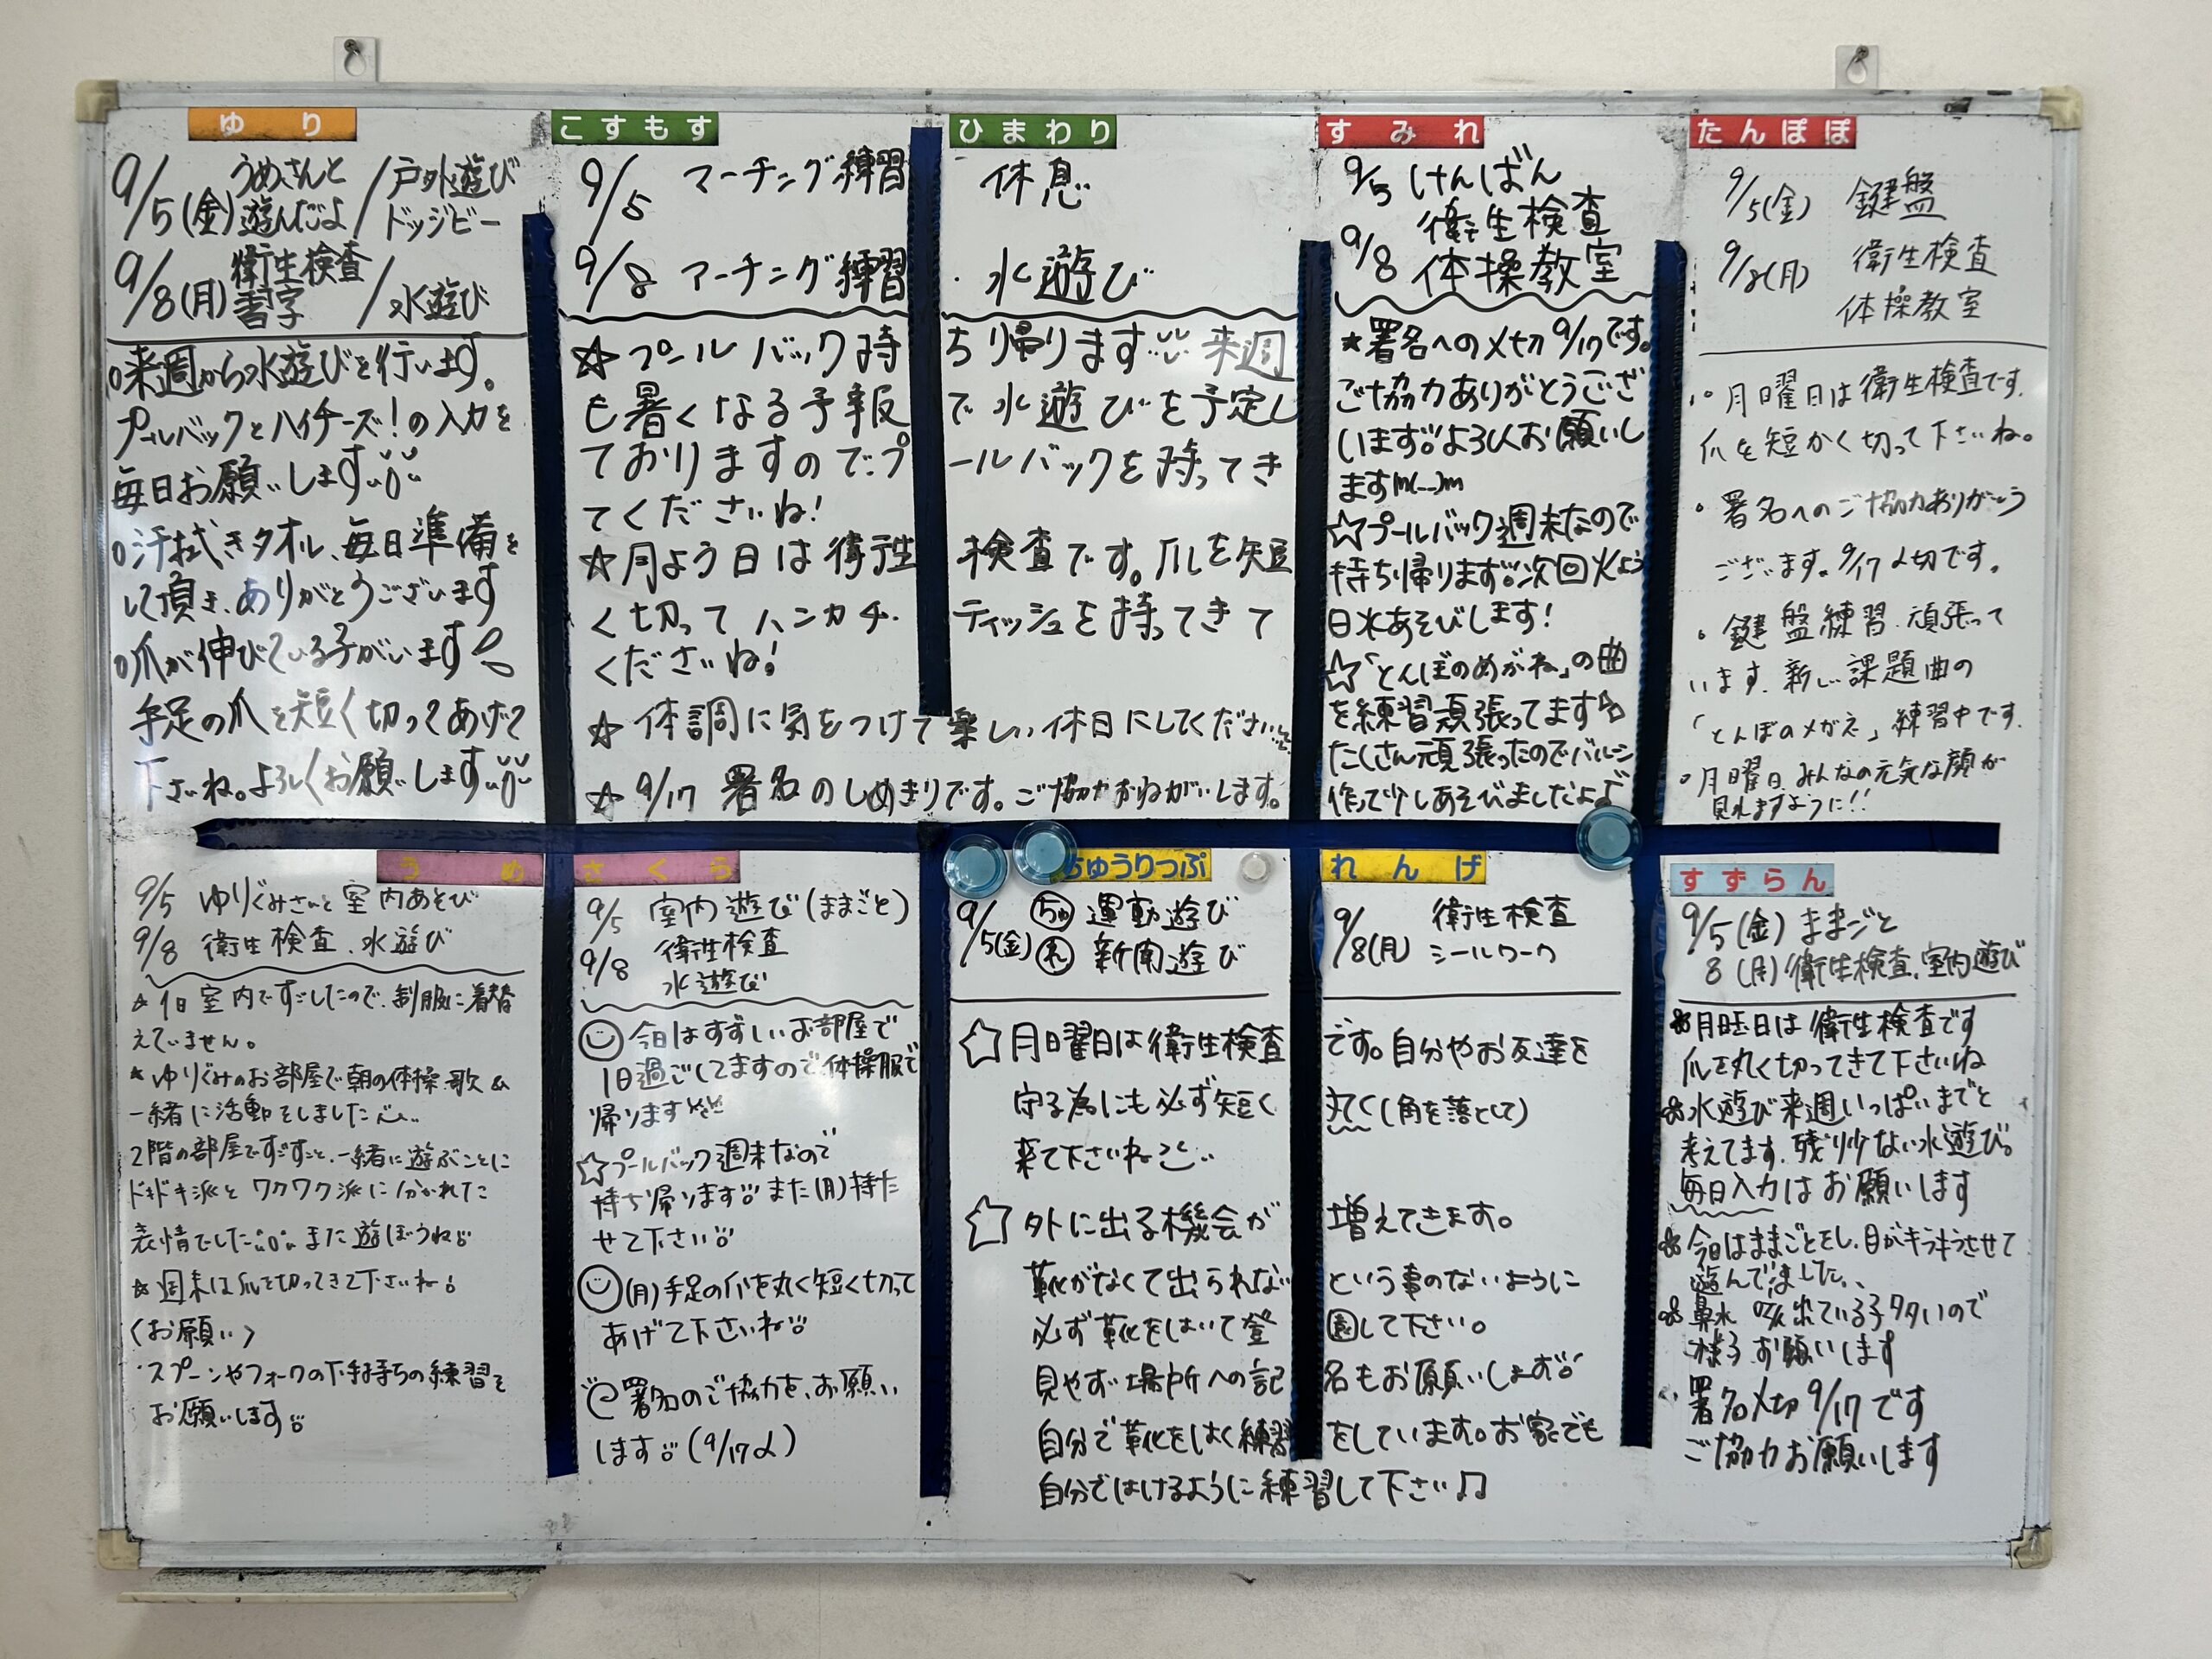 ゆり
9/5(金) うめさんと遊んだよ / 戸外遊び ドッジビー
9/8(月) 衛生検査 書字 / 水遊び
○来週から水遊びを行います。
プールバックとハイチーズ!の入力を
毎日お願いします
○汗拭きタオル、毎日準備を
して頂き、ありがとうございます
○爪が伸びている子がいます
手足の爪を短く切ってあげて
下さいね。よろしくお願いします
こすもす
ひまわり
9/5 マーチング練習 休息
9/8 マーチング練習 ・水遊び
☆プールバック時ち帰ります 来週
も暑くなる予報で水遊びを予定し
ておりますので、プールバックを持ってき
てくださいね!
☆月よう日は衛生検査です。爪を短
く切ってハンカチ・ティッシュを持ってきて
くださいね!
☆体調に気をつけて楽しい休日にしてください
☆9/17 署名のしめきりです。ご協力おねがいします。
すみれ
9/5 けんばん
衛生検査
9/8 体操教室
★署名への〆切9/17です。
ご協力ありがとうござ
います。よろしくお願いし
ますm(__)m
☆プールバック週末なので
持ち帰ります。次回火よう
日水あそびします!
☆「とんぼのめがね」の曲
を練習頑張ってます
たくさん頑張ったのでバルーン
作って少しあそびましたよ♪
たんぽぽ
9/5(金) 鍵盤
9/8(月) 衛生検査
体操教室
○月曜日は衛生検査です。
爪を短かく切って下さいね。
○署名へのご協力ありがとう
ございます。9/17〆切です。
○鍵盤練習頑張って
います。新しい課題曲の
「とんぼのメガネ」練習中です。
○月曜日、みんなの元気な顔が
見れますように!!
うめ
9/5 ゆりぐみさんと室内あそび
9/8 衛生検査、水遊び
☆1日室内ですごしたので、制服に着替
えていません。
★ゆりぐみのお部屋で朝の体操、歌&
一緒に活動をしました
2階の部屋ですごすこと、一緒に遊ぶことに
ドキドキ派とワクワク派に分かれた
表情でした また遊ぼうね
☆週末は爪を切ってきて下さいね
〈お願い〉
・スプーンやフォークの下手持ちの練習を
お願いします
さくら
9/5 室内遊び(ままごと)
9/8 衛生検査
水遊び
今日はすずしいお部屋で
1日過ごしてますので体操服で
帰ります
☆プールバック週末なので
持ち帰ります また(月)持た
せて下さい
(月)手足の爪を丸く短く切って
あげて下さいね
署名のご協力を、お願い
します (9/17〆)
ちゅうりつぷ
れんげ
9/5(金) ちゅ 運動遊び
れ 新聞遊び
9/8(月) 衛生検査
シールワーク
☆月曜日は衛生検査です。自分やお友達を
守る為にも必ず短く丸く(角を落として)
来て下さいね
☆外に出る機会が増えてきます。
靴がなくて出られないという事のないように
必ず靴をはいて登園して下さい。
見やすい場所への記名もお願いします
自分で靴をはく練習をしています。お家でも
自分ではけるように練習して下さい♫
すずらん
9/5(金) ままごと
8(月) 衛生検査、室内遊び
月旺日は衛生検査です
爪を丸く切ってきて下さいね
水遊び来週いっぱいまでと
考えてます。残り少ない水遊び。
毎日入力はお願いします
今日はままごとをし、目がキラキラさせて
遊んでました、
鼻水、咳出ている子多いので
様子お願いします
署名〆切9/17です
ご協力お願いします